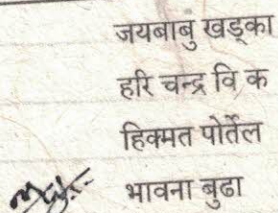 जयबाबु खड्का
हरि चन्द्र वि क
हिक्मत पोर्तेल
भावना बुढा